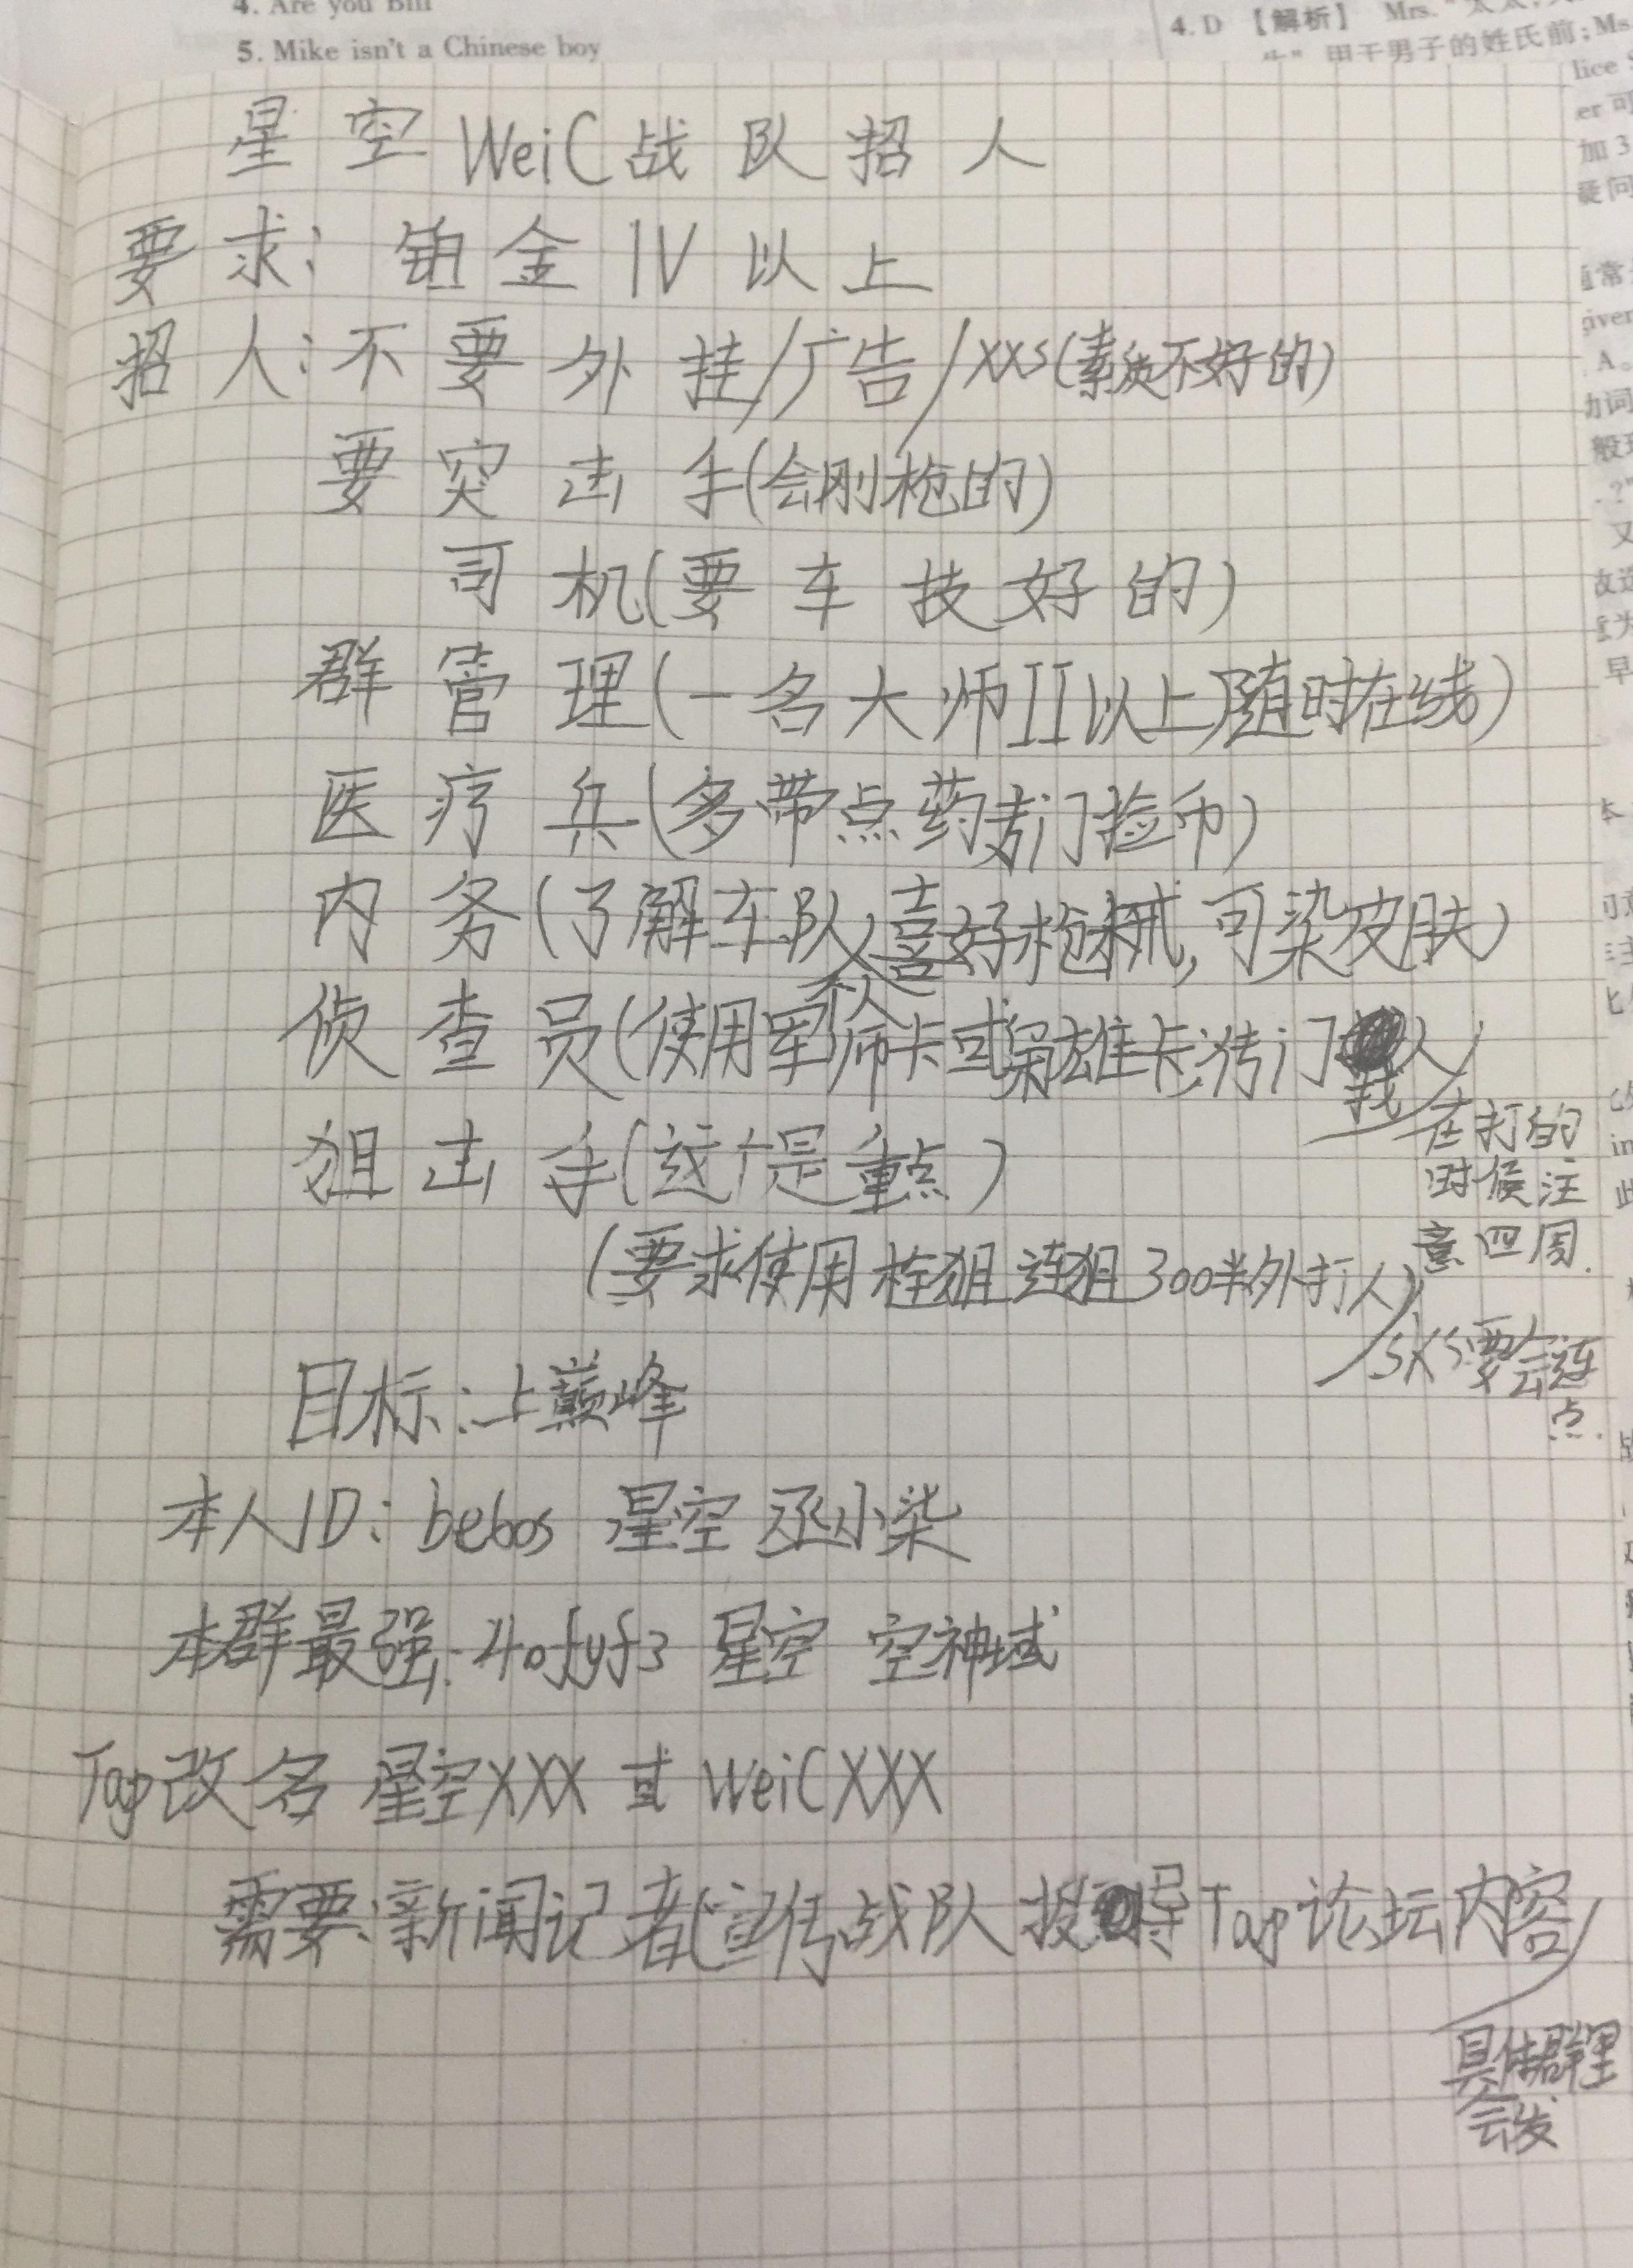 4. Are you Bill
5. Mike isn't a Chinese boy
4. D 【解析】 Mrs.
甲于男子的姓氏前；Ms
星空WeiC战队招人
要求：铂金IV以上
招人：不要外挂/广告/xxs(素质不好的)
要突击手(会刚枪的)
司机(要车技好的)
群管理(一名大师II以上随时在线)
医疗兵(多带点药专门捡币)
内务(了解车队人喜好枪械,可染皮肤)
侦查员(使用军师卡或枭雄卡;专门找人
在打的
时候注
意四周.
狙击手(这个是重点)
(要求使用栓狙连狙300米外打人)
SKS要会连
点.
目标：上巅峰
本人ID：bebos 星空 丞小柒
本群最强：4ofyf3 星空 空神域
Tap改名 星空XXX 或 WeiCXXX
需要：新闻记者(宣传战队 投得Tap论坛内容
具体群里
会发